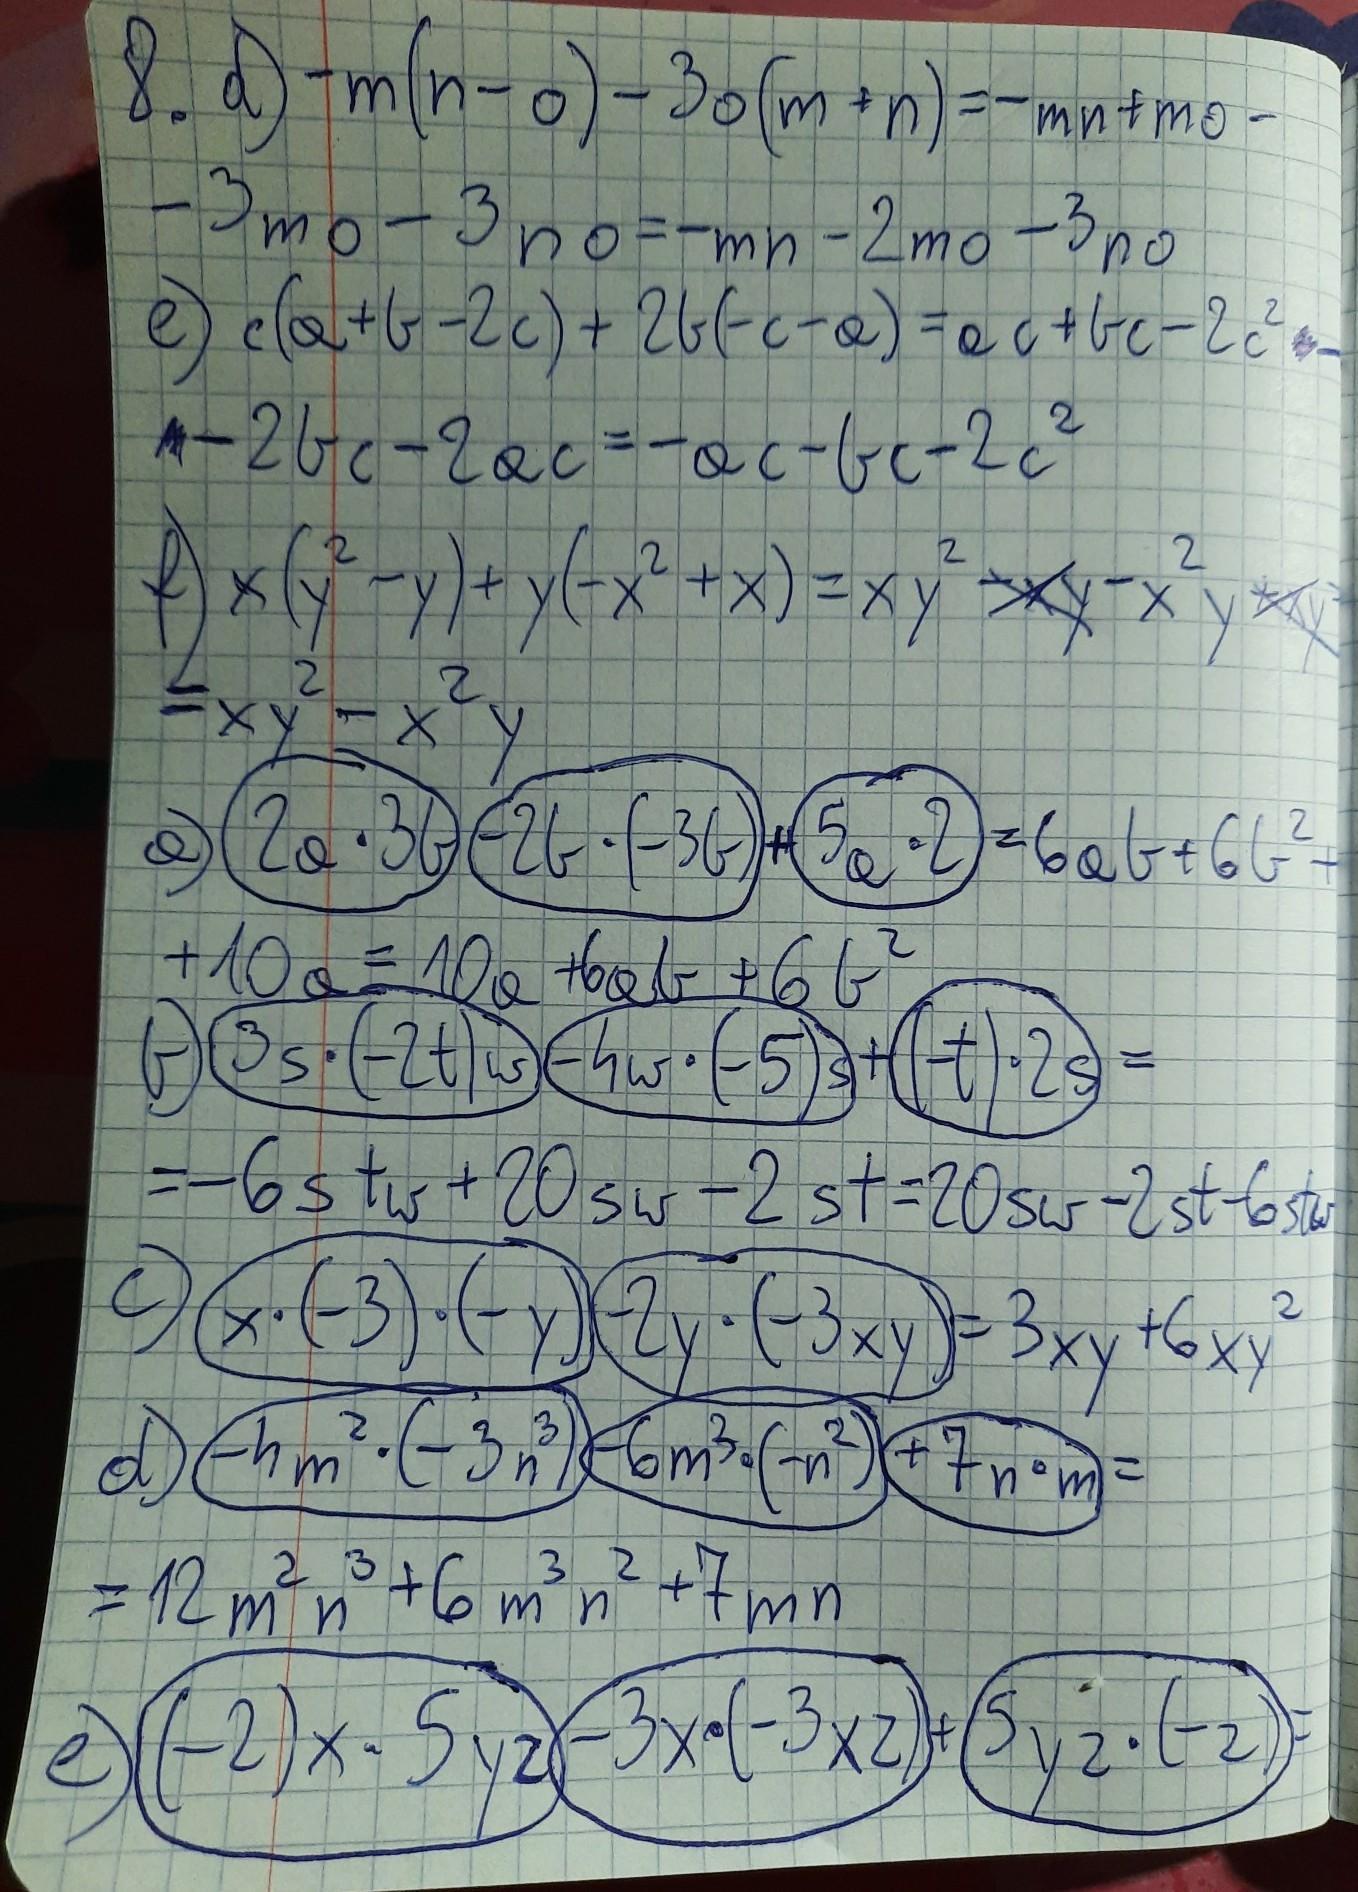 8. d) -m(n-o)-3o(m+n)=-mn+mo-
-3mo-3no=-mn-2mo-3no
e) c(a+b-2c)+2b(-c-a)=ac+bc-2c² -
-2bc-2ac=-ac-bc-2c²
f) x(y²-y)+y(-x²+x)=xy²-xy-x²y+xy
=xy²-x²y
a) 2a·3b-2b·(-3b)+5a·2=6ab+6b²+
+10a=10a+6ab+6b²
b) 3s·(-2t)w-4w·(-5)s+(-t)·2s=
=-6stw+20sw-2st=20sw-2st-6stw
c) x·(-3)·(-y)-2y·(-3xy)=3xy+6xy²
d) -4m²·(-3n³)-6m³·(-n²)+7n·m=
=12m²n³+6m³n²+7mn
e) (-2)x·5yz-3x·(-3xz)+5yz·(-z)=